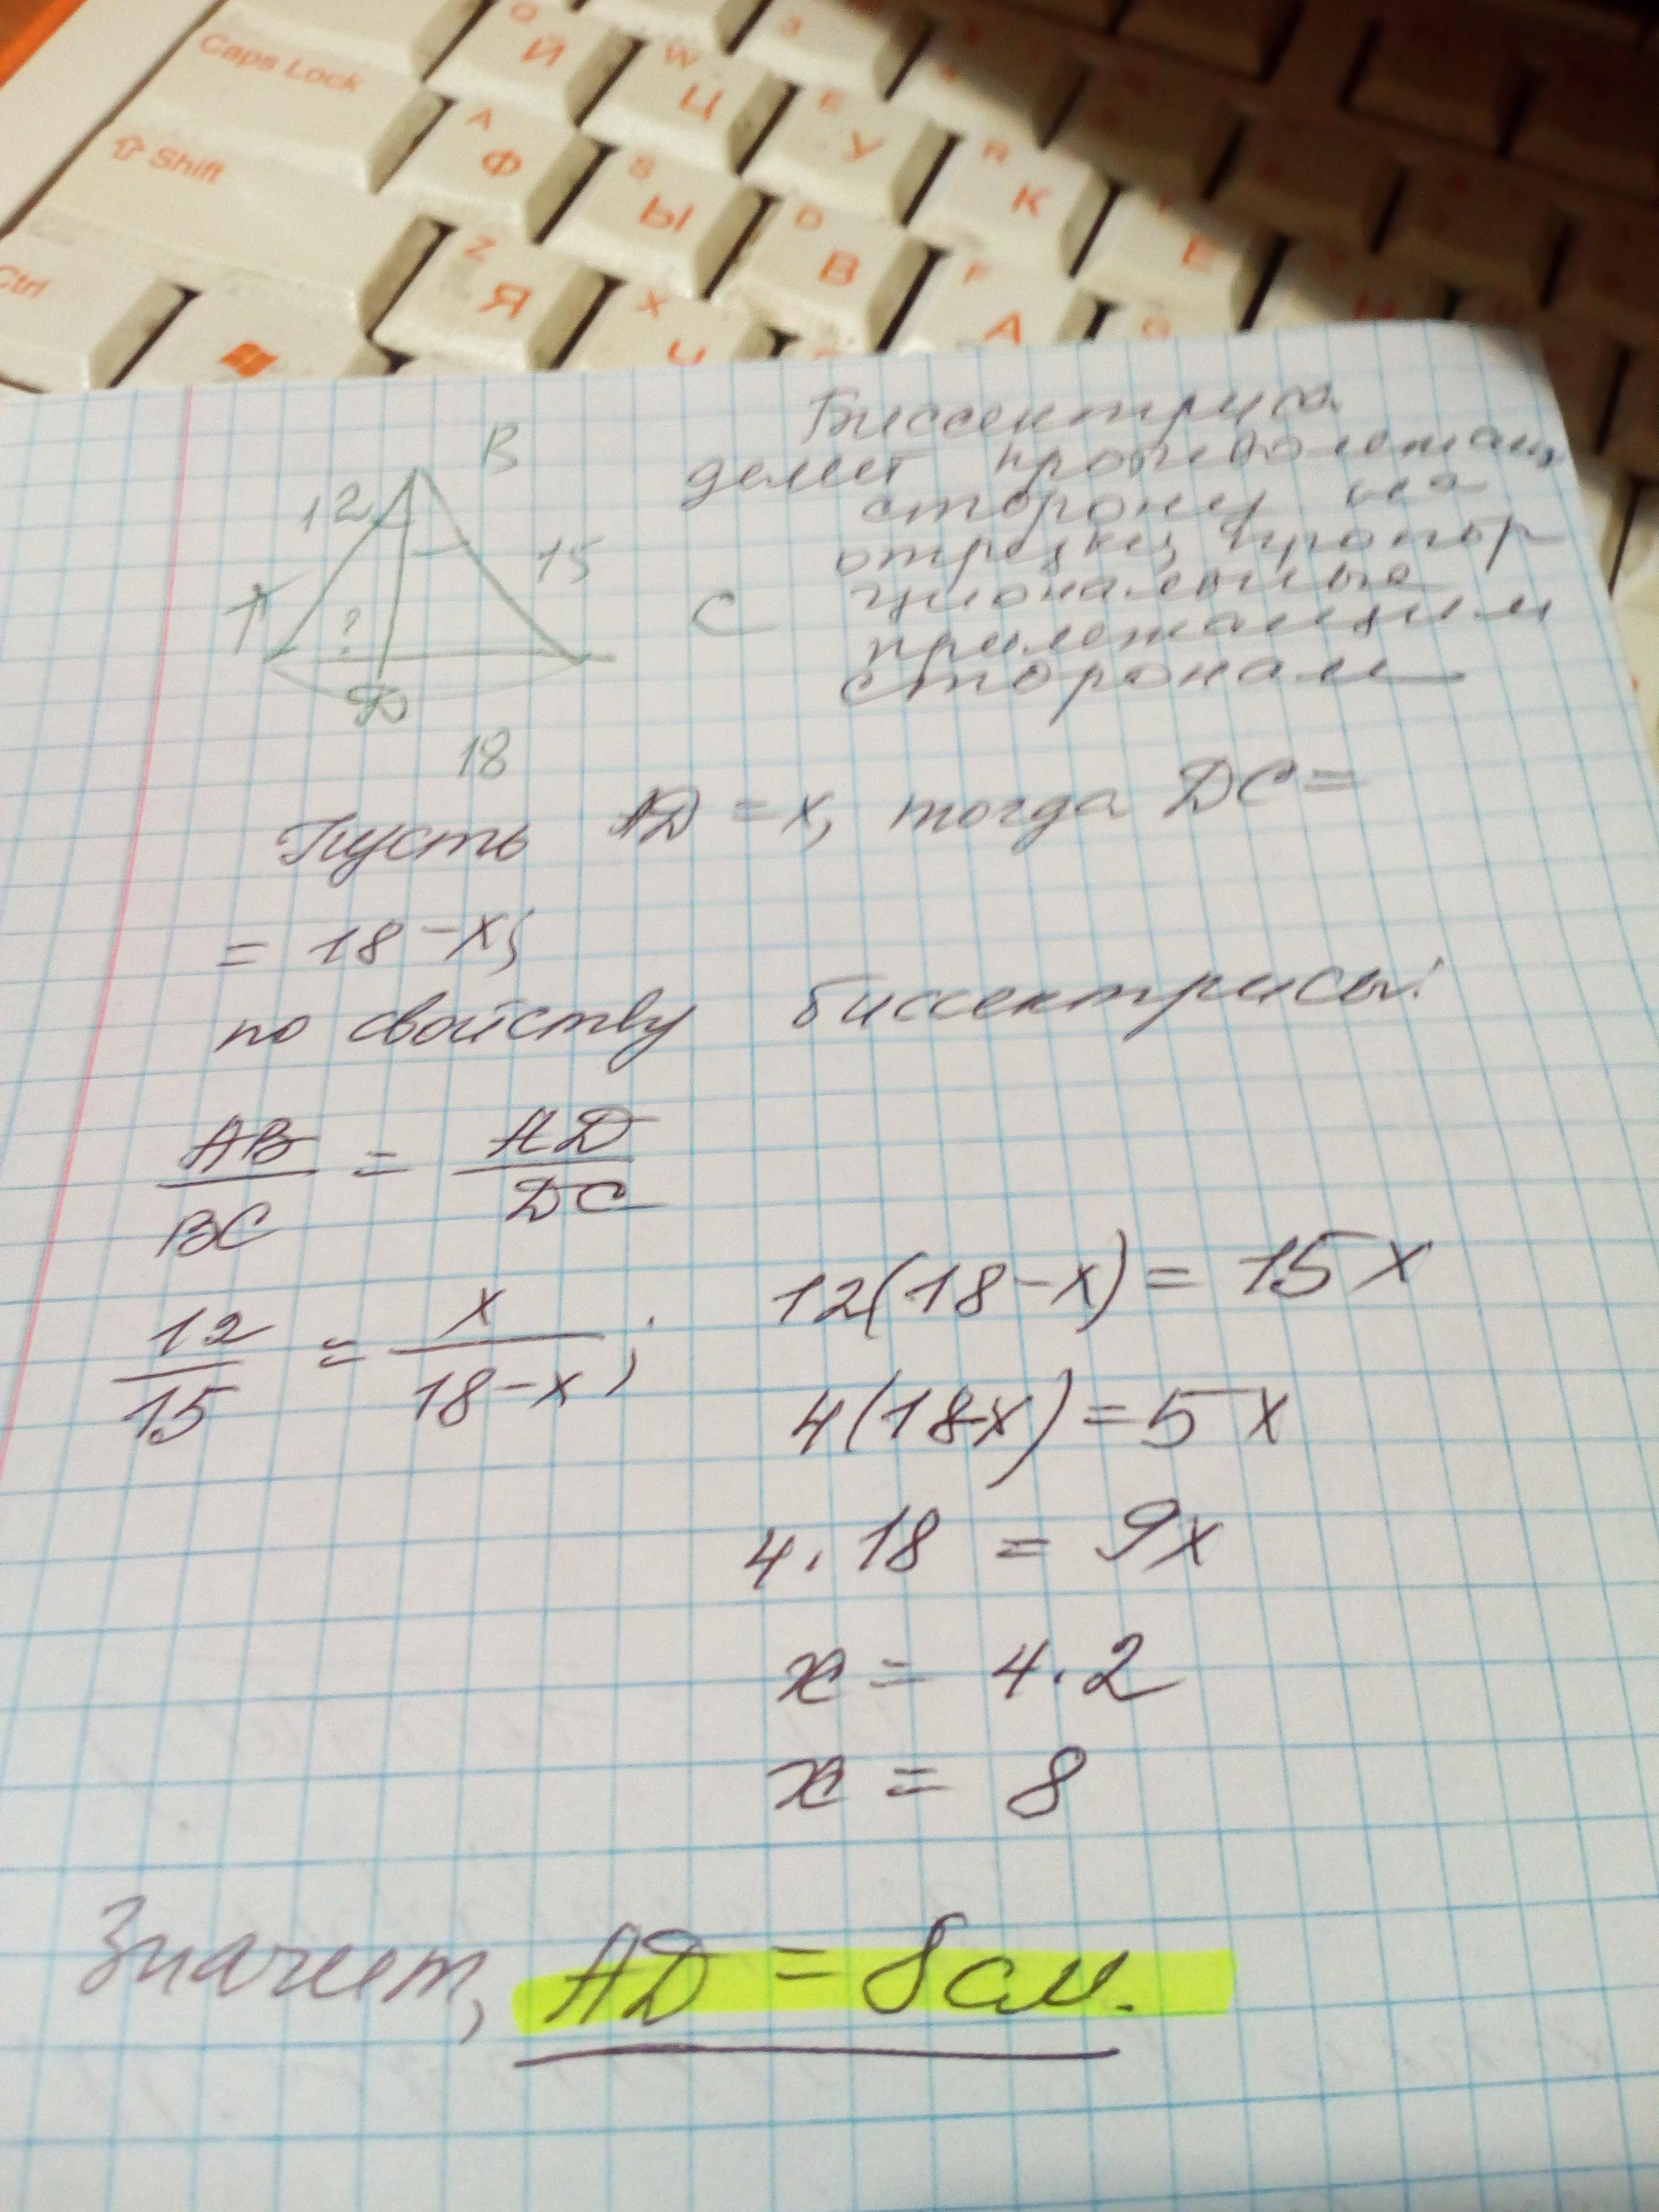 Caps Lock
Shift
Ctrl
Й
W Ц
E У
R К
Е
A Ф
S Ы
D В
F А
G
Z Я
X Ч
B
12
15
A
?
C
D
18
Биссектриса
делит противолежащ.
сторону на
отрезки, пропор
циональные
прилежащим
сторонам
Пусть AD = x, тогда DC =
= 18 - x;
по свойству биссектрисы:
AB/BC = AD/DC
12/15 = x/18-x;
12(18-x) = 15x
4(18-x) = 5x
4.18 = 9x
x = 4.2
x = 8
Значит, AD = 8 см.